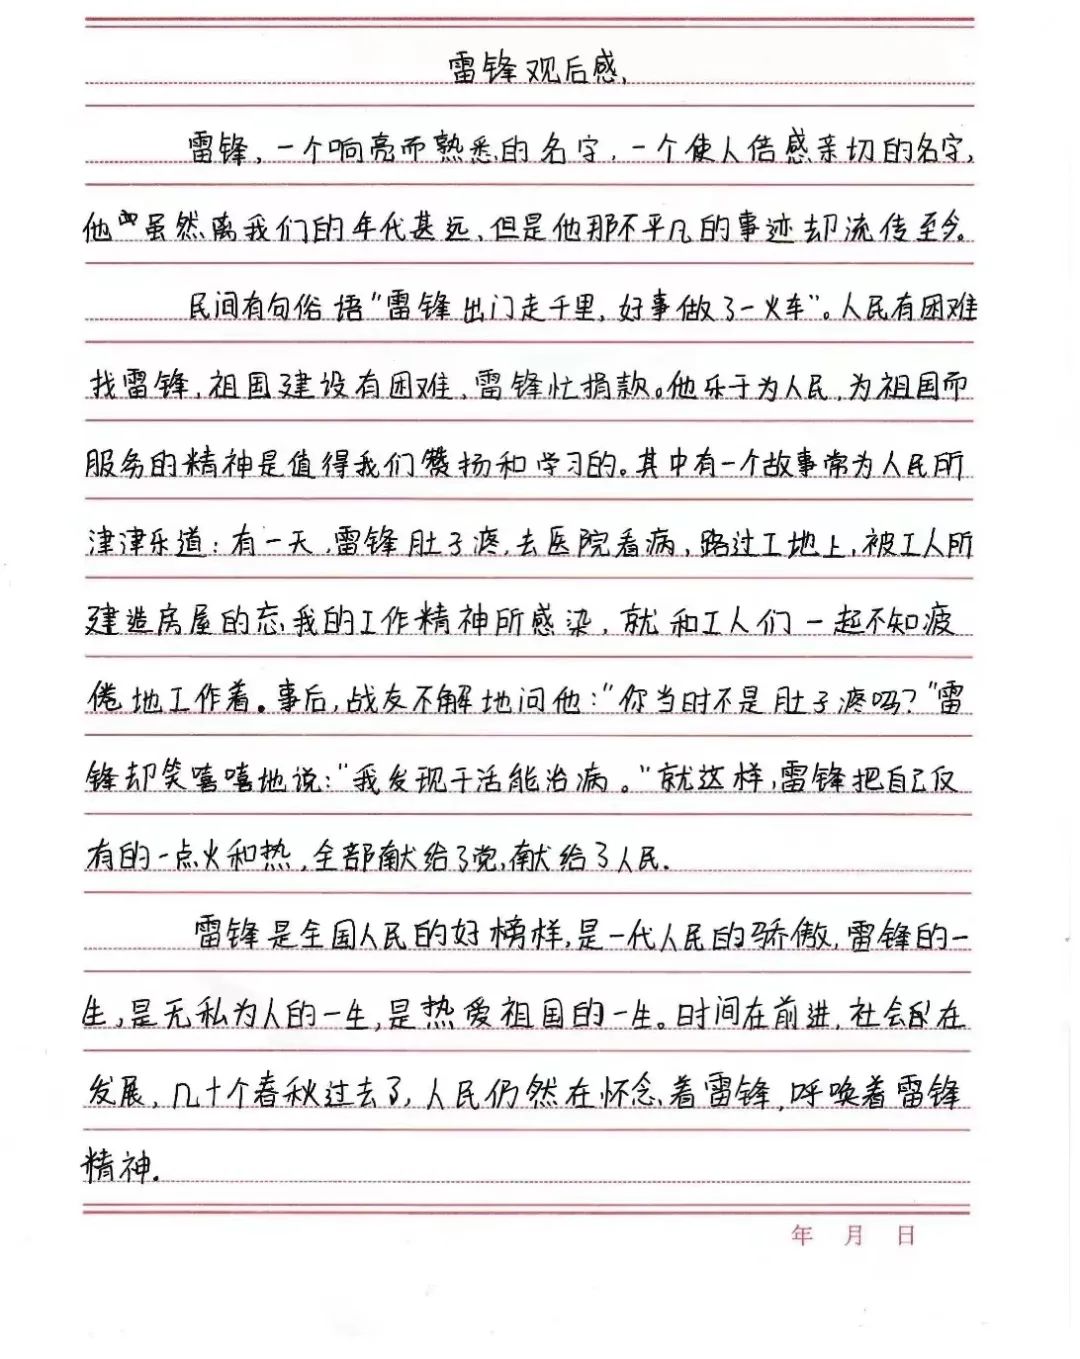 雷锋观后感.
雷锋，一个响亮而熟悉的名字，一个使人倍感亲切的名字，
他虽然离我们的年代甚远、但是他那不平凡的事迹却流传至今。
民间有句俗语"雷锋出门走千里，好事做了一火车"。人民有困难
找雷锋，祖国建设有困难，雷锋忙捐款。他乐于为人民，为祖国而
服务的精神是值得我们赞扬和学习的。其中有一个故事常为人民所
津津乐道：有一天，雷锋肚子疼，去医院看病，路过工地上，被工人所
建造房屋的忘我的工作精神所感染，就和工人们一起不知疲
倦地工作着。事后，战友不解地问他："你当时不是肚子疼吗？"雷
锋却笑嘻嘻地说："我发现干活能治病。"就这样，雷锋把自己仅
有的一点火和热，全部献给了党，献给了人民.
雷锋是全国人民的好榜样，是一代人民的骄傲，雷锋的一
生，是无私为人的一生，是热爱祖国的一生。时间在前进，社会在
发展，几十个春秋过去了，人民仍然在怀念着雷锋，呼唤着雷锋
精神.
年 月 日